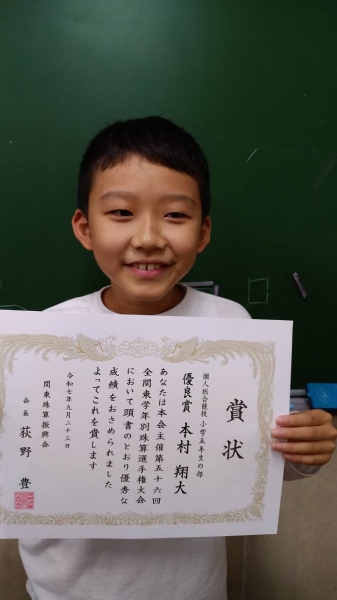 賞状
個人総合競技 小学五年生の部
優良賞 本村 翔大
あなたは本会主催第五十六回
全関東学年別珠算選手権大会
において頭書のとおり優秀な
成績をおさめられました
よってこれを賞します
令和七年九月二十三日
関東珠算振興会
会長 荻野 豊